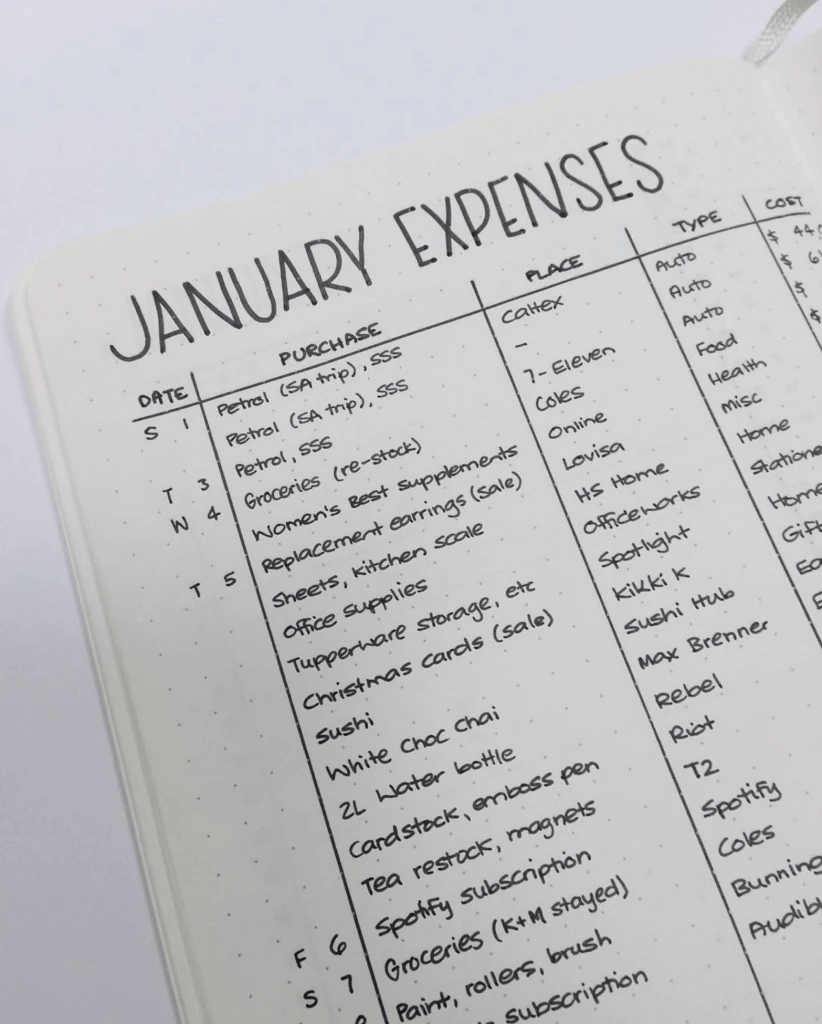 JANUARY EXPENSES
DATE PURCHASE PLACE TYPE COST
S 1 Petrol (SA trip), SSS Caltex Auto $ 44
Petrol (SA trip), SSS - Auto $ 6
T 3 Petrol, SSS 7-Eleven Auto $
W 4 Groceries (re-stock) Coles Food $
Women's Best supplements Online Health
T 5 Replacement earrings (sale) Lovisa Misc
Sheets, kitchen scale HS Home Home
Office supplies Officeworks Statione
Tupperware storage, etc Spotlight Home
Christmas cards (sale) Kikki K Gif
Sushi Sushi Hub
White Choc Chai Max Brenner
2L Water bottle Rebel
Cardstock, emboss pen Riot
Tea restock, magnets T2
F 6 Spotify subscription Spotify
S 7 Groceries (K+M stayed) Coles
Paint, rollers, brush Bunning
subscription Audibl